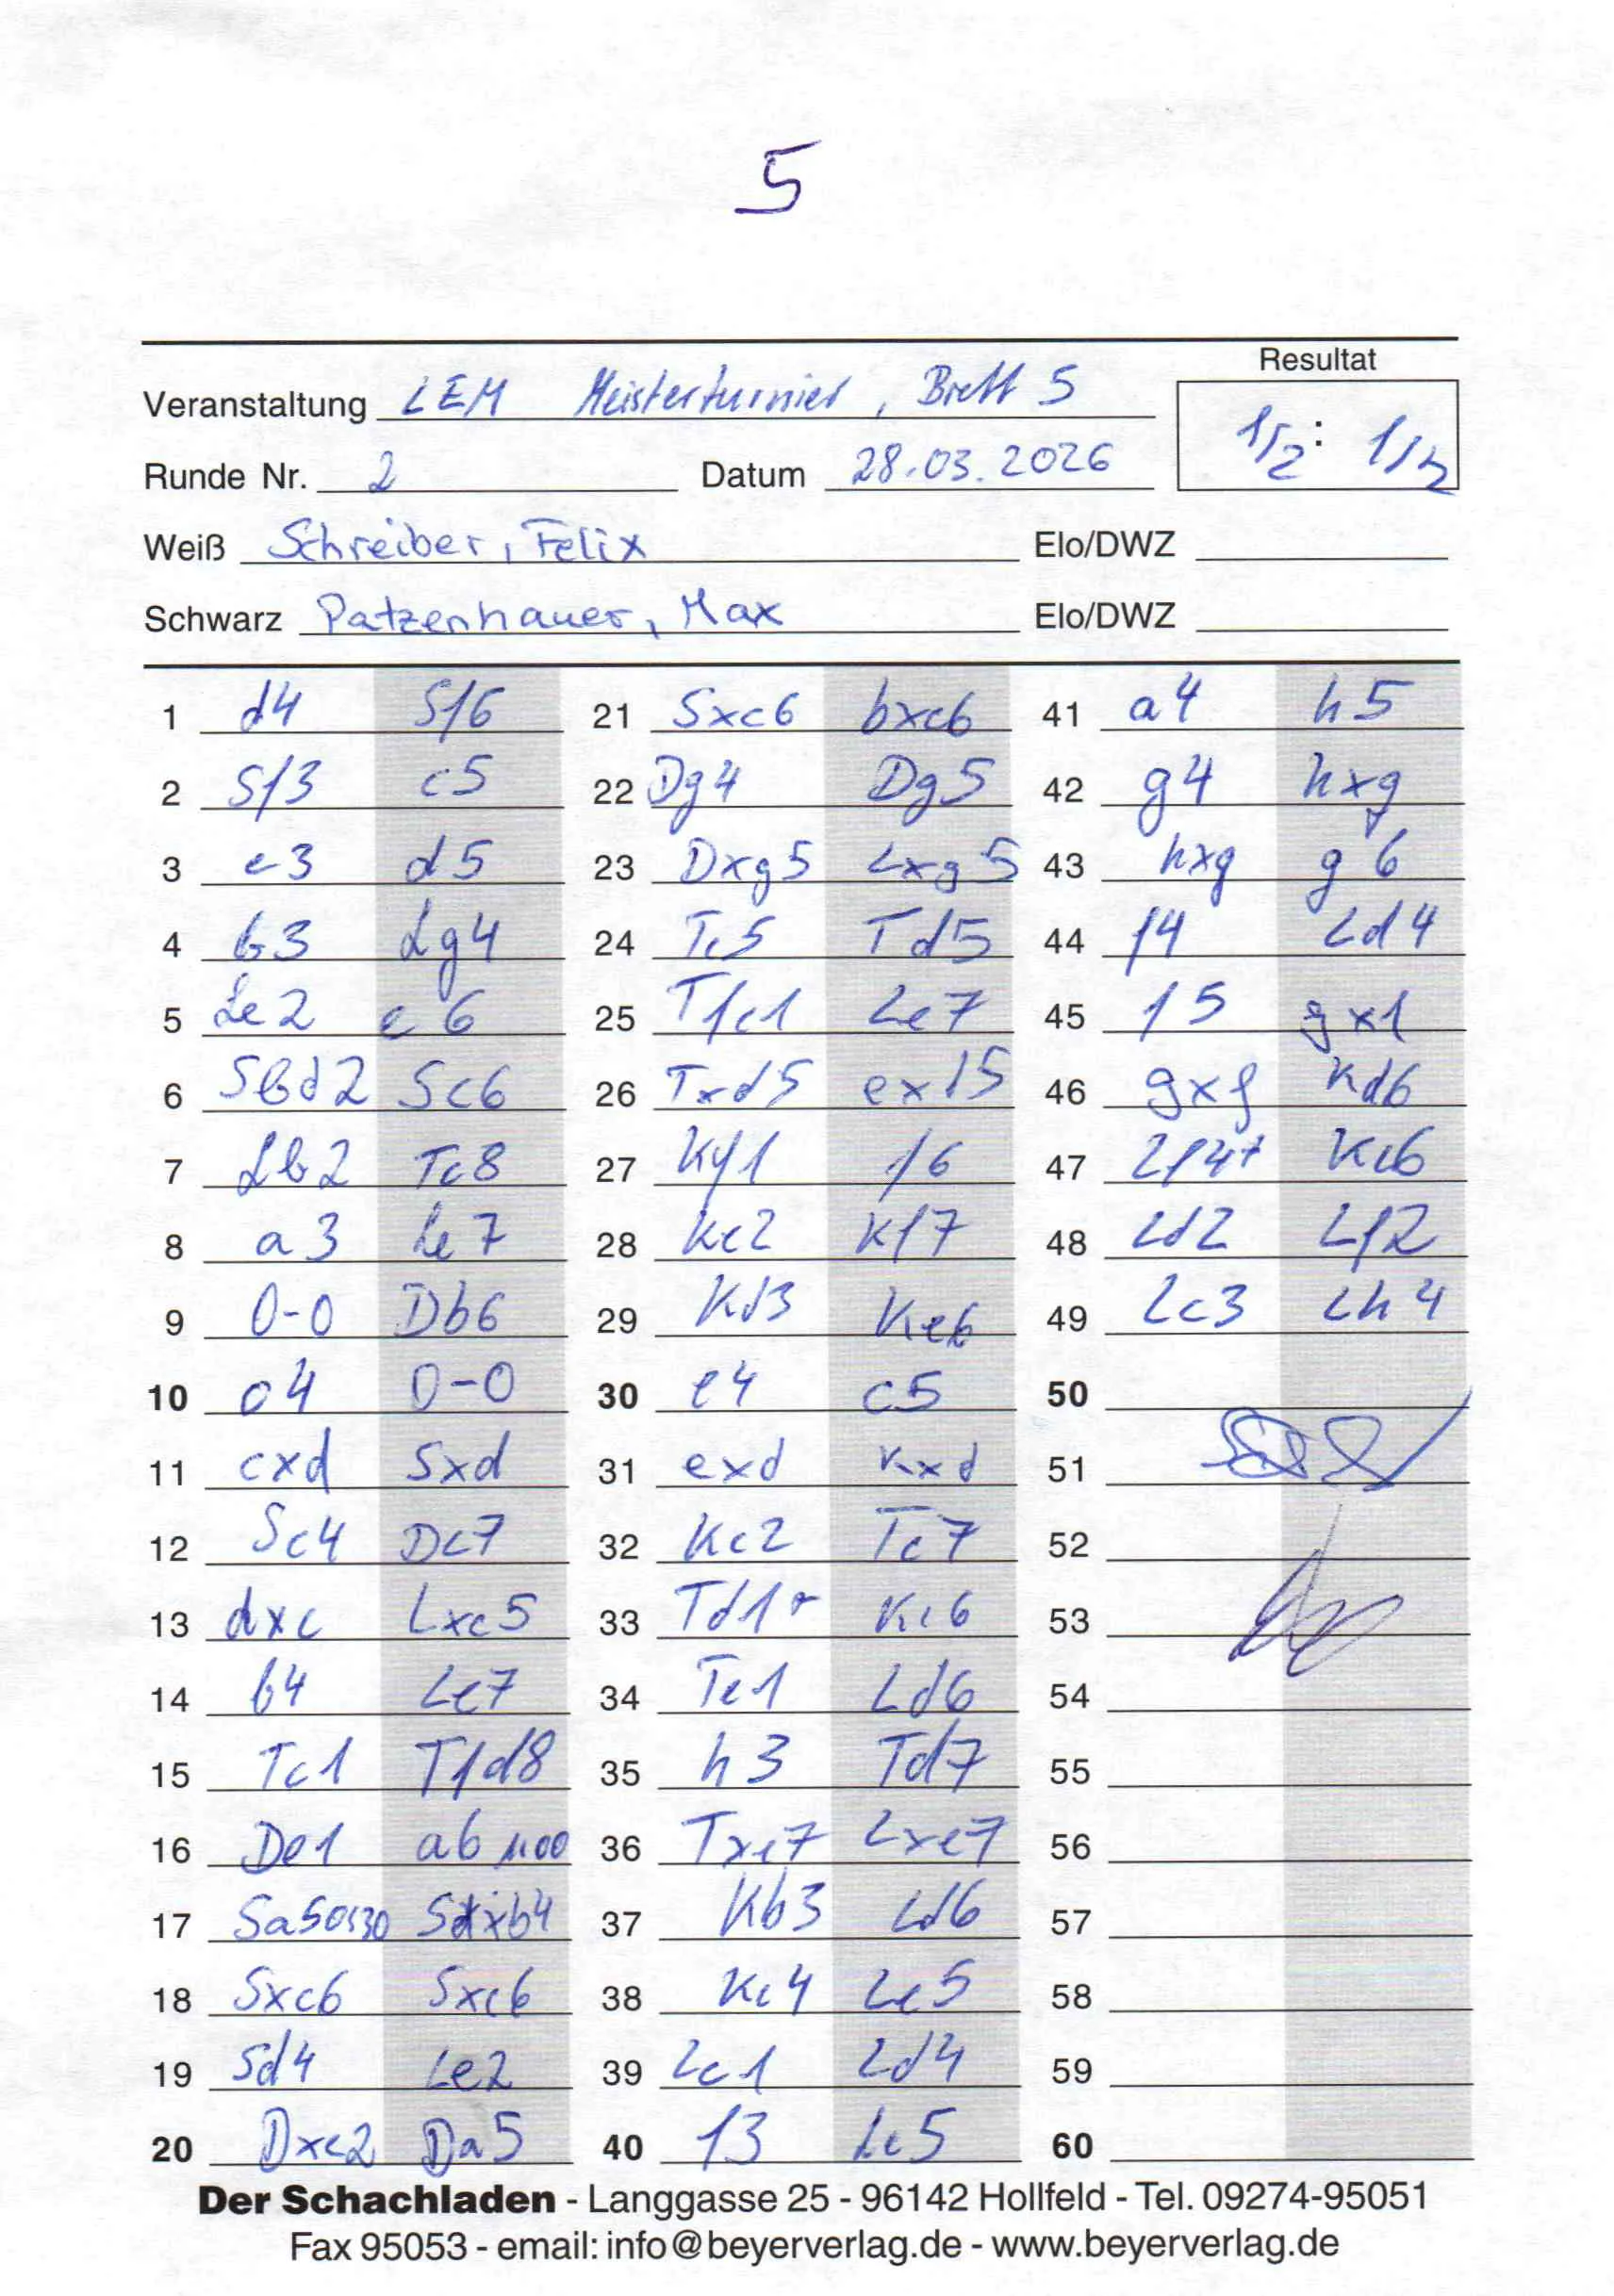 5
Resultat
Veranstaltung LEM Meisterturnier, Brett 5
1/2 : 1/2
Runde Nr. 2 Datum 28.03.2026
Weiß Schreiber, Felix Elo/DWZ
Schwarz Patzenhauer, Max Elo/DWZ
1 d4 Sf6
2 Sf3 c5
3 e3 d5
4 b3 Lg4
5 Le2 e6
6 Sbd2 Sc6
7 Lb2 Tc8
8 a3 Le7
9 0-0 Db6
10 c4 0-0
11 cxd Sxd
12 Sc4 Dc7
13 dxc Lxc5
14 b4 Le7
15 Tc1 Tfd8
16 De1 a6
17 Sa5 Sdxb4
18 Sxc6 Sxc6
19 Sd4 Le2
20 Dxe2 Da5
21 Sxc6 bxc6
22 Dg4 Dg5
23 Dxg5 Lxg5
24 Tc5 Td5
25 Tfc1 Le7
26 Txd5 exd5
27 Kf1 f6
28 Ke2 Kf7
29 Kd3 Ke6
30 e4 c5
31 exd Kxd
32 Kc2 Tc7
33 Td1+ Kc6
34 Te1 Ld6
35 h3 Td7
36 Txe7 Lxe7
37 Kb3 Ld6
38 Kc4 Le5
39 Lc1 Ld4
40 f3 Le5
41 a4 h5
42 g4 hxg
43 hxg g6
44 f4 Ld4
45 f5 gxf
46 gxf Kd6
47 Lf4+ Kc6
48 Ld2 Lf2
49 Lc3 Lh4
50
51
52
53
54
55
56
57
58
59
60
Der Schachladen - Langgasse 25 - 96142 Hollfeld - Tel. 09274-95051
Fax 95053 - email: info@beyerverlag.de - www.beyerverlag.de